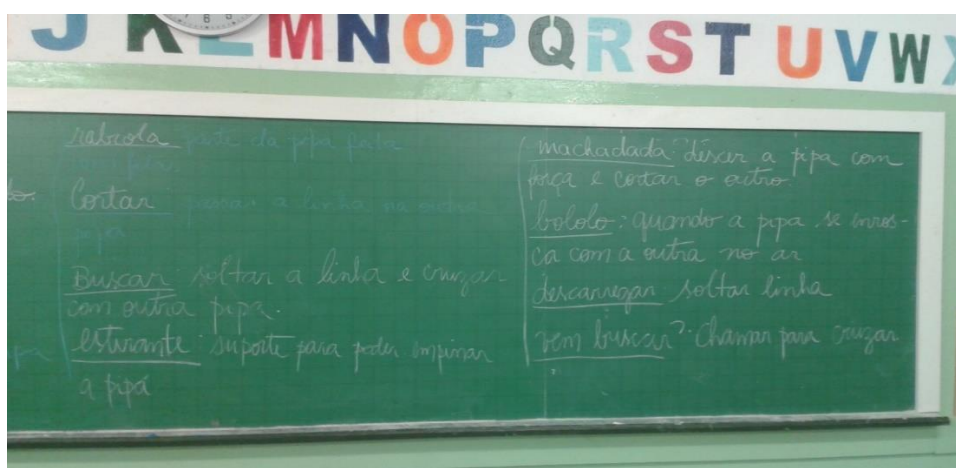 J K L M N O P Q R S T U V W X
rabiola parte da pipa feita
Cortar passar a linha na outra
pipa
Buscar: soltar a linha e cruzar
com outra pipa.
estirante: suporte para poder empinar
a pipa
machadada: descer a pipa com
força e cortar o outro.
bololo: quando a pipa se enros-
ca com a outra no ar
descarregar soltar linha
vem buscar?: chamar para cruzar